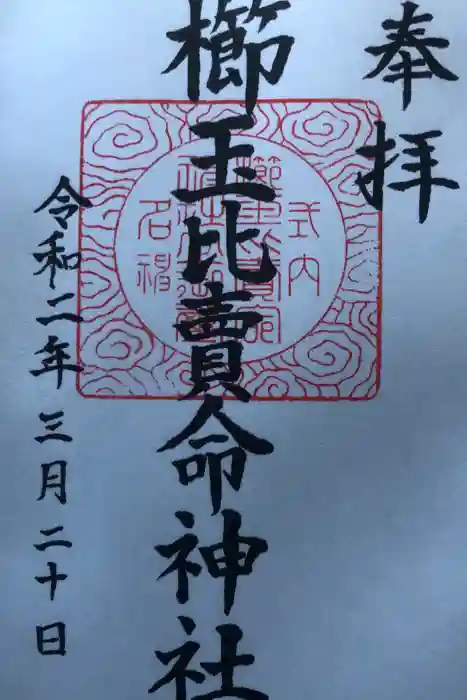 奉拝
櫛玉比賣命神社
式内
櫛玉比賣命
名神
令和二年三月二十日